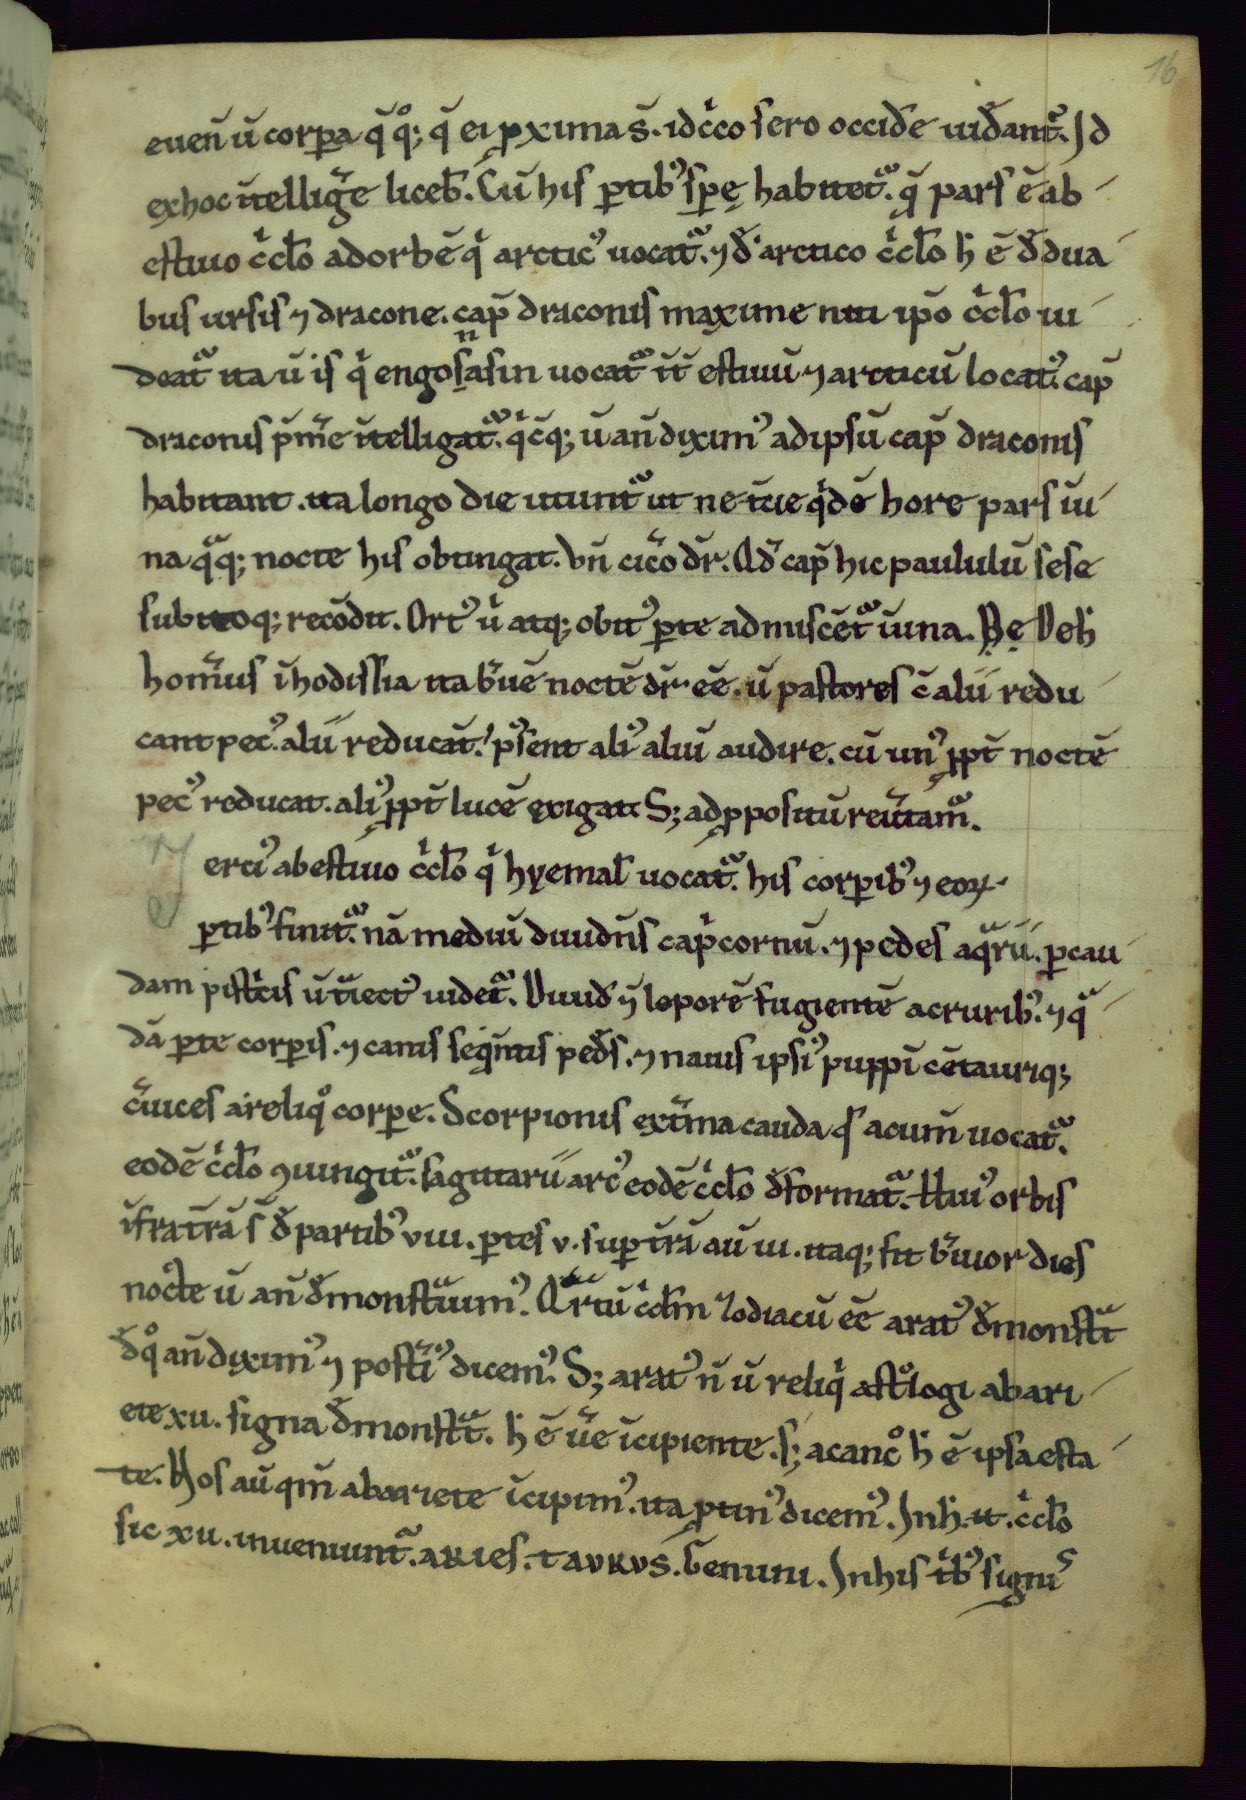 16
eueñ ū corpa q̄ qͦ; q̄ ei pxima s̄. idc̄co sero occide᷑ uid᷑ant᷑. Id
exhoc ītellig᷑e liceb᷑. Cū his ptibꝰ spę habitet᷑. q̄ pars ē ab
estiuo c̄clo adorbē q̇ arcticꝰ uocat᷑. ⁊ d᷑ arctico c̄clo h̄ ē d᷑ dua
bus ursis ⁊ dracone. cap̄ draconis maxime niti ip̄o c̄clo ui
deat᷑ ita ū is q̇ engosasin uocat᷑ īt̄ estiuū ⁊ arcticū locatꝰ. cap̄
draconis p̄m᷑e ītelligat᷑. q̇c̄q; ū añ diximꝰ adipsū cap̄ draconis
habitant. ita longo die utunt᷑ ut ne t̄cie q̇dē hore pars iu
na q̄q; nocte his obtingat. Vñ cic᷑o dr̄. Qd᷑ cap̄ hic paululū sese
subitoq; recōdit. Ortꝰ ū atq; obitꝰ pte admiscēt᷑ iuna. Dę Deh̄
hom᷑ius ī hodissia ita b᷑uē noctē dr̄. eē. ū pastores c̄ alii redu
cant pecꝰ. alii reducāt. p̄sent aliꝰ aliū audire. cū unꝰ ppt̄ noctē
pecꝰ reducat. aliꝰ ppt̄ lucē exigat. S; adppositū reu᷑tamꝰ.
erciꝰ abestiuo c̄clo q̇ hyemal᷑ uocat᷑. his corpibꝰ ⁊ eoꝝ
ptibꝰ finit᷑. nā mediū diuidñs cap̄cornū. ⁊ pedes aq̄rii. pcau
dam pist̄cis ū t̄iectꝰ uidet᷑. Diuid᷑ ⁊ leporē fugientē acruribꝰ. ⁊ q̄
dā pte corpis. ⁊ canis seq̄ntis ped᷑s. ⁊ nauis ipsiꝰ puppī cētauriq;
c᷑uices areliqͦ corpe. Scorpionis ext᷑ma cauda q̄ acum̄ uocat᷑.
eodē c̄clo ꝯiungit᷑. sagittarii arcꝰ eodē c̄clo d᷑format᷑. Huiꝰ orbis
īfrat̄rā s̄ d᷑ partibꝰ viii. ptes v. supt̄rā aū iii. itaq; fit b᷑uior dies
nocte ū añ d᷑monst᷑uimꝰ. Q᷑rtū c̄clm̄ zodiacū eē aratꝰ d᷑monst᷑t
d᷑ qͦ añ diximꝰ ⁊ post᷑iꝰ dicemꝰ. S; aratꝰ n̄ ū reliq̇ astͦlogi abari
ete xii. signa d᷑monst᷑t. h̄ ē u᷑e īcipiente. s; acancͦ h̄ ē ipsa esta
te. Nos aū qm̄ abariete īcipimꝰ. ita ptinꝰ dicemꝰ. In h̄. it. c̄clo
sic xii. inueniunt᷑. aries. taurus. Gemini. In his t̄bꝰ signis